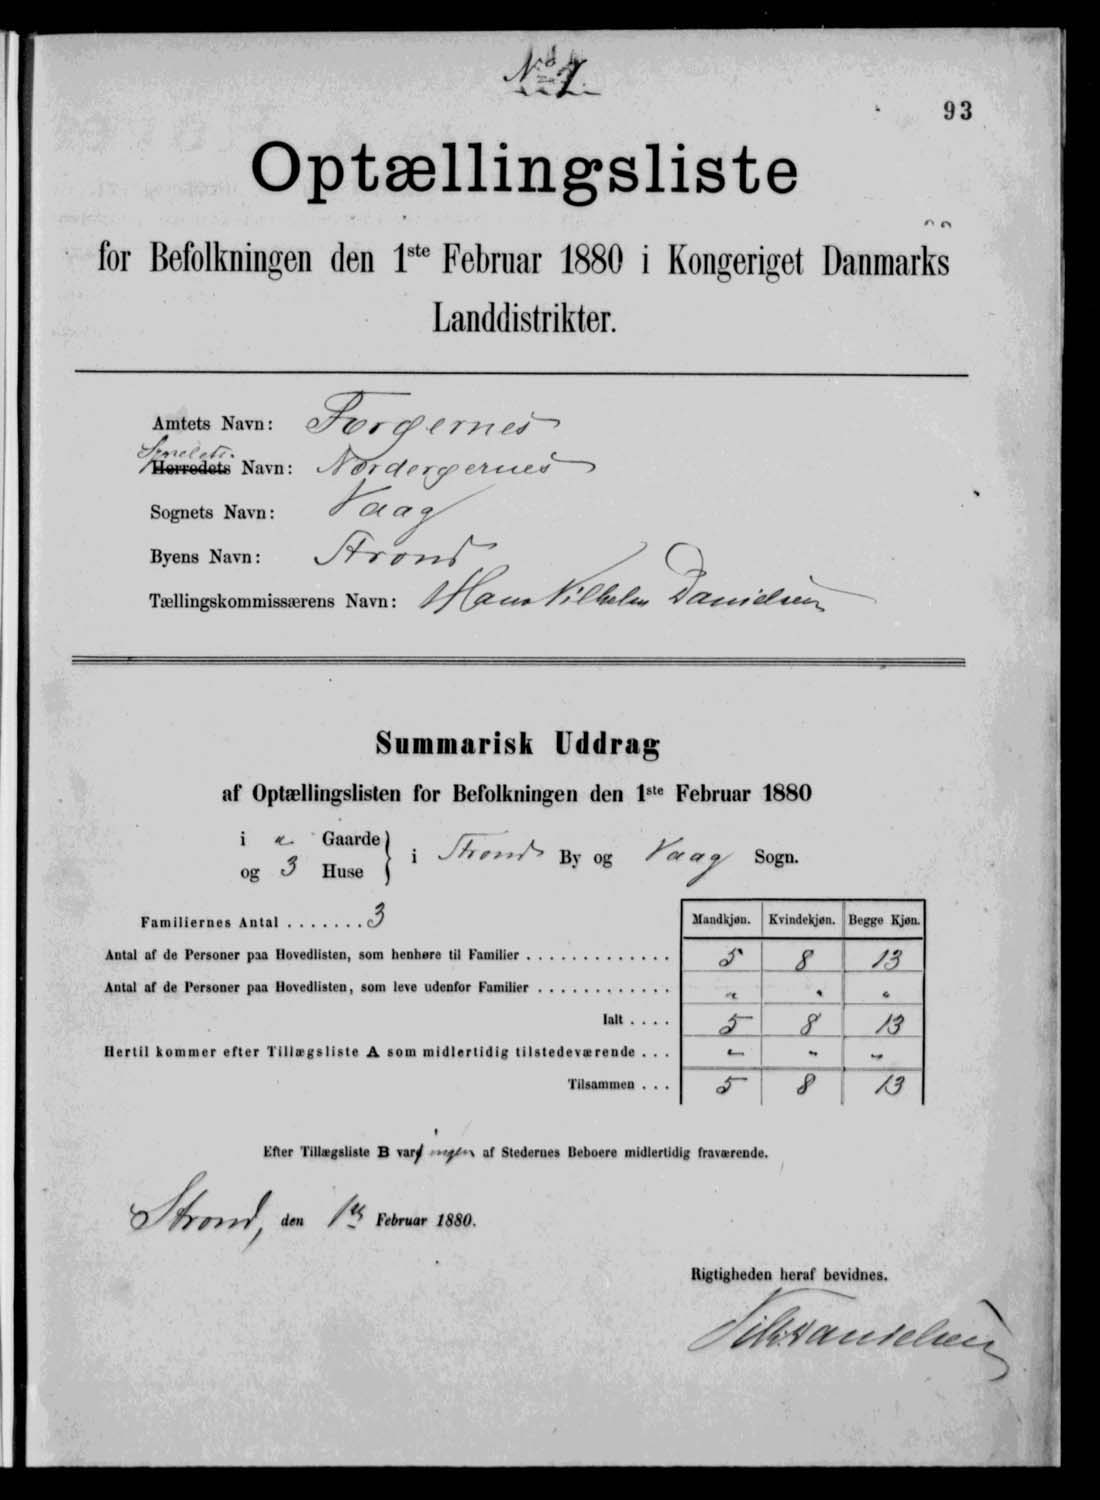 No 7.
93
Optællingsliste
for Befolkningen den 1ste Februar 1880 i Kongeriget Danmarks
Landdistrikter.
Amtets Navn: Færøernes
Sysselets
Herredets Navn: Norderøernes
Sognets Navn: Vaag
Byens Navn: Strond
Tællingskommissærens Navn: Hans Vilhelm Danielsen
Summarisk Uddrag
af Optællingslisten for Befolkningen den 1ste Februar 1880
i " Gaarde
og 3 Huse
i Strond By og Vaag Sogn.
Familiernes Antal ....... 3
Mandkjøn. Kvindekjøn. Begge Kjøn.
Antal af de Personer paa Hovedlisten, som henhøre til Familier . . . . 5 8 13
Antal af de Personer paa Hovedlisten, som leve udenfor Familier . . . . " " "
Ialt .... 5 8 13
Hertil kommer efter Tillægsliste A som midlertidig tilstedeværende ... " " "
Tilsammen ... 5 8 13
Efter Tillægsliste B var ingen af Stedernes Beboere midlertidig fraværende.
Strond, den 1ste Februar 1880.
Rigtigheden heraf bevidnes.
Vilh. Danielsen